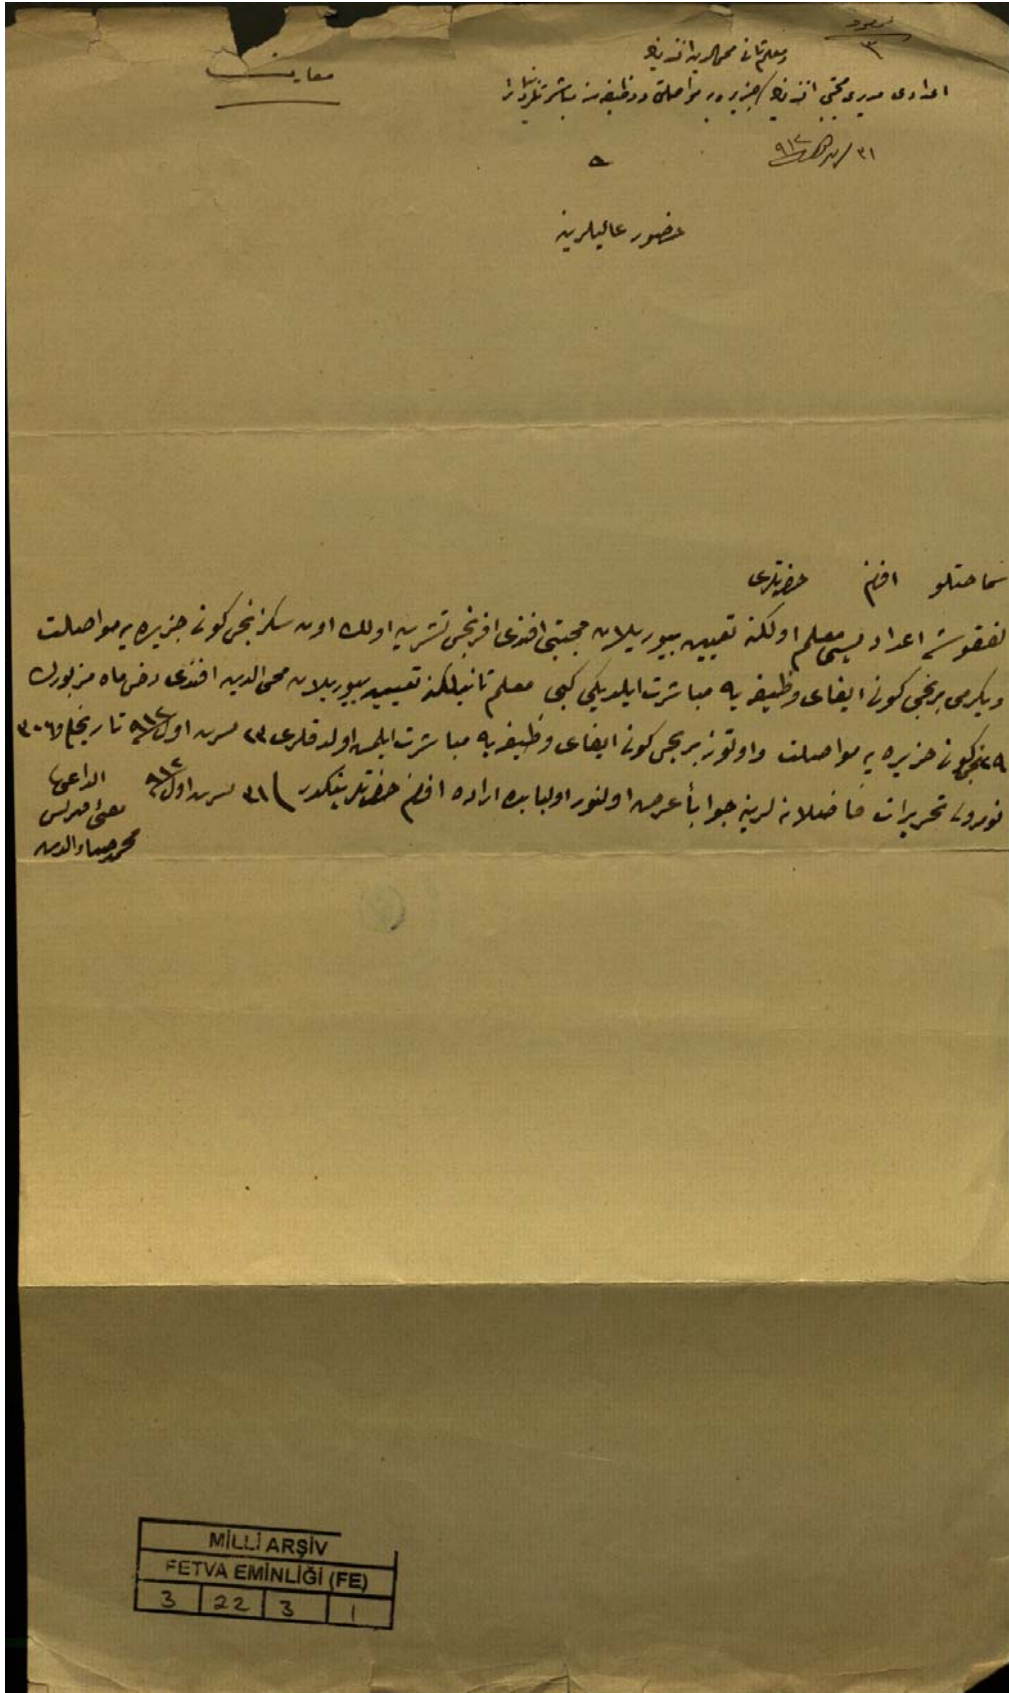 نومرو
٣
معارف
ومعلم ثانی محی الدین افندینك
اعدادی مدیری مجتبی افندینك جزیره‌یه مواصلتی و وظیفه‌سنه مباشرتلرینه دائر
٣١ ٩١٢
حضور عالیلرینه
سماحتلو افندم حضرتلری
لفقوشه اعدادیسی معلم اولكنه تعیین بیوریلان مجتبی افندی افرنجی تشرین اولك اون سكزنجی كونی جزیره‌یه مواصلت
ویكرمی برنجی كونی ایفای وظیفه‌یه مباشرت ایلدیكی كبی معلم ثانیلكنه تعیین بیوریلان محی الدین افندی دخی ماه مزبورك
٢٩نجی كونی جزیره‌یه مواصلت واوتوز برنجی كونی ایفای وظیفه‌یه مباشرت ایلمش اولدقلری ٢٣ تشرین اول ٩١٢ تاریخلی و ٣٠٦
نومرولی تحریرات فاضلانه‌لرینه جواباً عرض اولنور اولبابده اراده افندم حضرتلرینكدر ٣١ تشرین اول ٩١٢
الداعی
مفتی قبرس
محمد ضیاءالدین
MİLLİ ARŞİV
FETVA EMİNLİĞİ (FE)
3 22 3 1